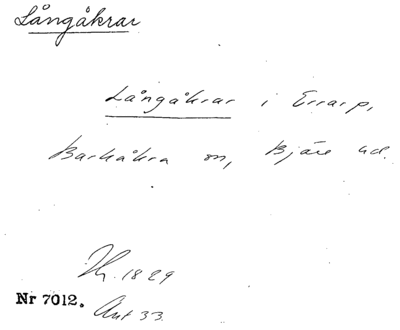 Långåkrar
Långåkrar i Errarp,
Barkåkra sn, Bjäre hd.
1829
Nr 7012.
33.